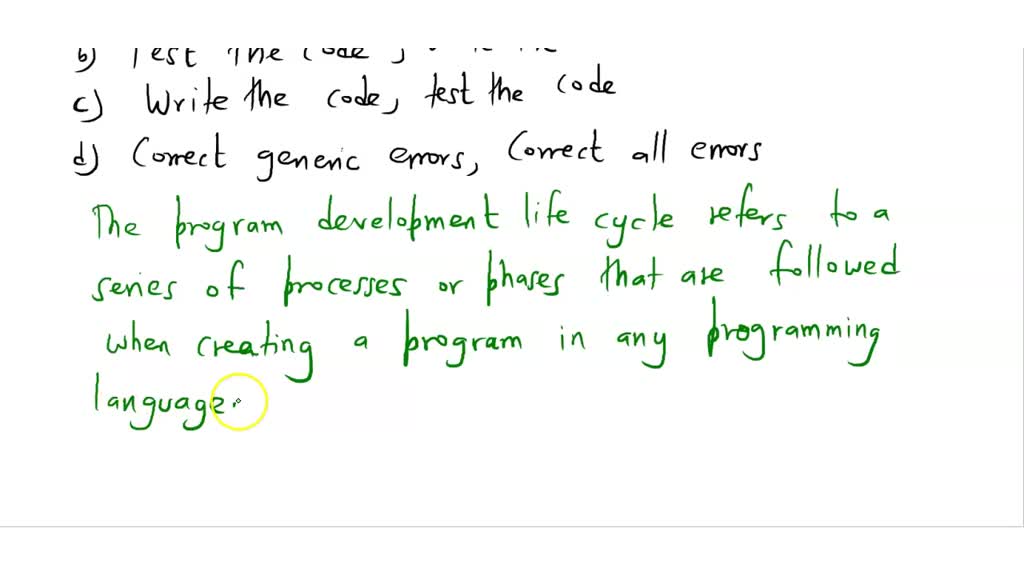 b) Test The Code,
c) Write the code, test the code
d) Correct generic errors, Correct all errors
The program development life cycle refers to a
series of processes or phases that are followed
when creating a program in any programming
language.